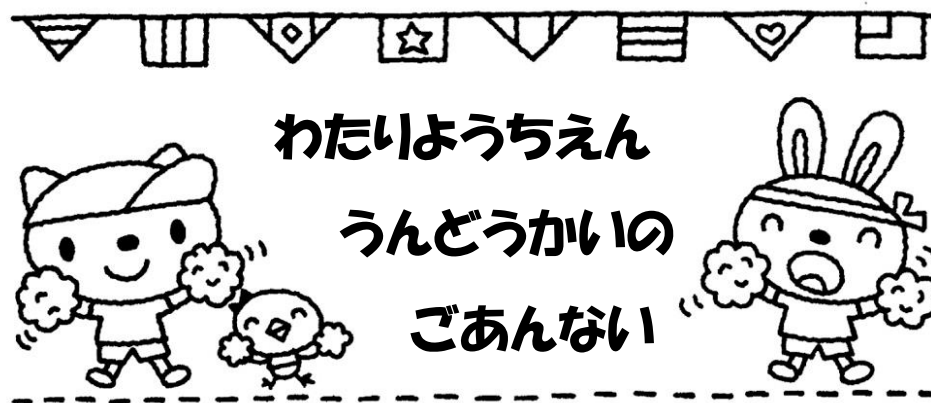 わたりようちえん
うんどうかいの
ごあんない